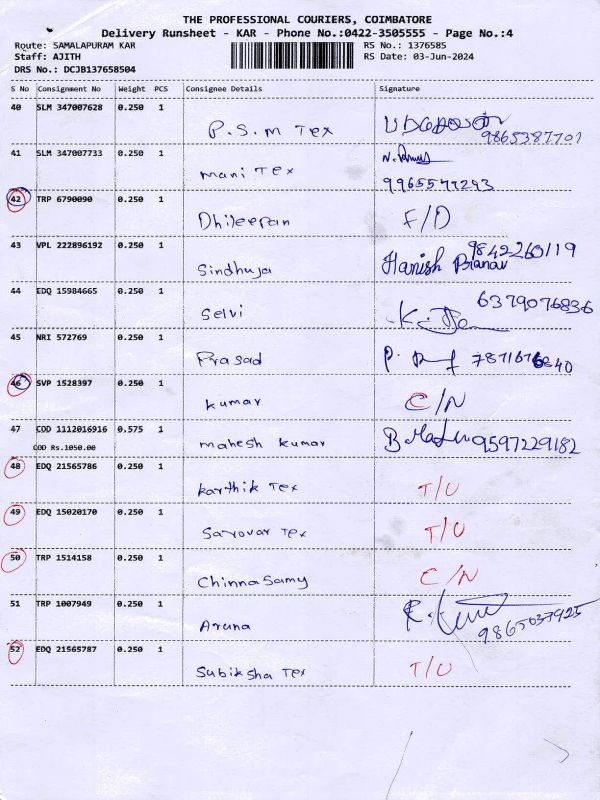 THE PROFESSIONAL COURIERS, COIMBATORE
Delivery Runsheet - KAR - Phone No.:0422-3505555 - Page No.:4
Route: SAMALAPURAM KAR RS No.: 1376585
Staff: AJITH RS Date: 03-Jun-2024
DRS No.: DCJB137658504
S No Consignment No Weight PCS Consignee Details Signature
40 SLM 347007628 0.250 1 P.S.M Tex 9865387701
41 SLM 347007733 0.250 1 Mani Tex
42 TRP 6790090 0.250 1 Dhileepan F/D
43 VPL 222896192 0.250 1 Sindhuja Harish Pranav 9842260119
44 EDQ 15984665 0.250 1 Selvi 6379076836
45 NRI 572769 0.250 1 Prasad
46 SVP 1528397 0.250 1 Kumar C/N
47 COD 1112016916 0.575 1 Mahesh Kumar 9597229182
COD Rs.1050.00
48 EDQ 21565786 0.250 1 Karthik Tex T/U
49 EDQ 15020170 0.250 1 Sarovar Tex T/U
50 TRP 1514158 0.250 1 Chinnasamy C/N
51 TRP 1007949 0.250 1 Aruna 9865037925
52 EDQ 21565787 0.250 1 Subiksha Tex T/U